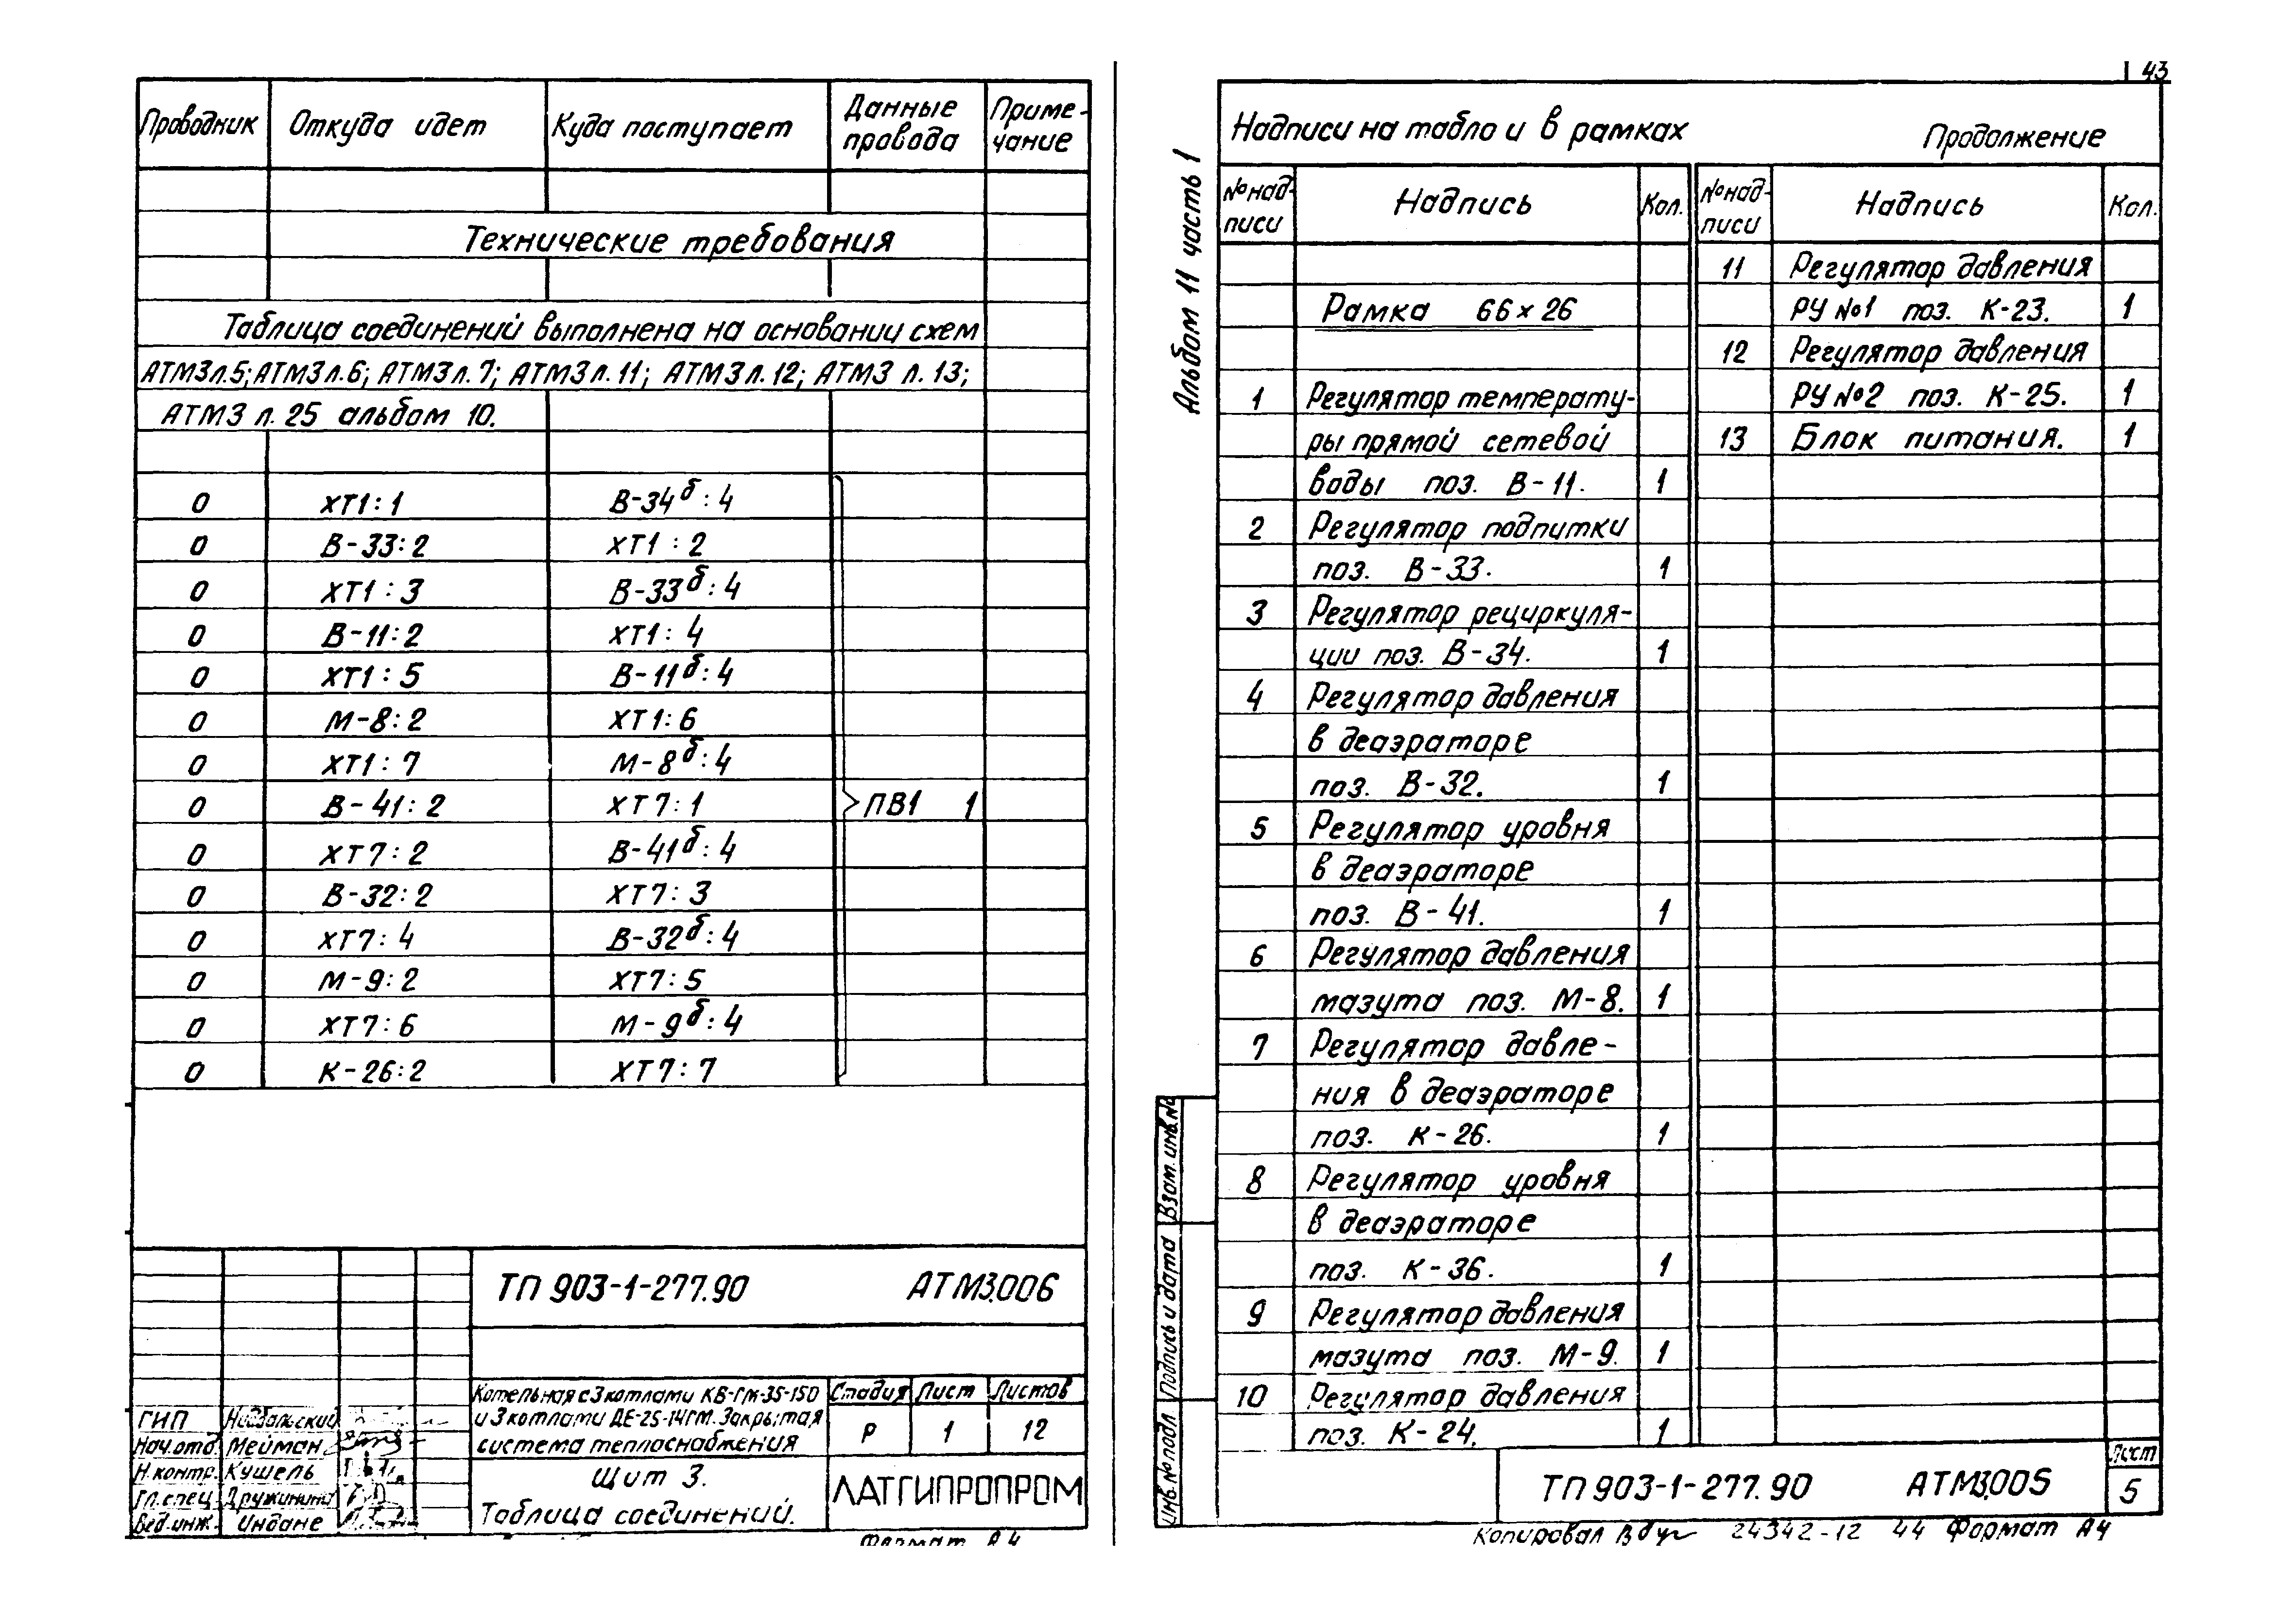 Проводник Откуда идет Куда поступает Данные провода Приме-чание
Технические требования
Таблица соединений выполнена на основании схем
АТМ3 л.5; АТМ3 л.6; АТМ3 л.7; АТМ3 л.11; АТМ3 л.12; АТМ3 л.13;
АТМ3 л.25 альбом 10.
0 ХТ1:1 В-34б:4
0 В-33:2 ХТ1:2
0 ХТ1:3 В-33б:4
0 В-11:2 ХТ1:4
0 ХТ1:5 В-11б:4
0 М-8:2 ХТ1:6
0 ХТ1:7 М-8б:4
0 В-41:2 ХТ7:1 ПВ1 1
0 ХТ7:2 В-41б:4
0 В-32:2 ХТ7:3
0 ХТ7:4 В-32б:4
0 М-9:2 ХТ7:5
0 ХТ7:6 М-9б:4
0 К-26:2 ХТ7:7
ТП 903-1-277.90 АТМ3.006
Котельная с 3 котлами КВ-ГМ-35-150
и 3 котлами ДЕ-25-14ГМ. Закрытая
система теплоснабжения
Стадия Лист Листов
Р 1 12
ГИП
Нач.отд. Мейман
Н.контр. Кушель
Гл.спец. Дружинина
Вед.инж. Индане
Щит 3.
Таблица соединений.
ЛАТГИПРОПРОМ
Формат А4
43
Альбом 11 часть 1
Надписи на табло и в рамках Продолжение
№ над-писи Надпись Кол. № над-писи Надпись Кол.
Рамка 66×26
1 Регулятор температу-
ры прямой сетевой
воды поз. В-11. 1
2 Регулятор подпитки
поз. В-33. 1
3 Регулятор рециркуля-
ции поз. В-34. 1
4 Регулятор давления
в деаэраторе
поз. В-32. 1
5 Регулятор уровня
в деаэраторе
поз. В-41. 1
6 Регулятор давления
мазута поз. М-8. 1
7 Регулятор давле-
ния в деаэраторе
поз. К-26. 1
8 Регулятор уровня
в деаэраторе
поз. К-36. 1
9 Регулятор давления
мазута поз. М-9. 1
10 Регулятор давления
поз. К-24. 1
11 Регулятор давления
РУ №1 поз. К-23. 1
12 Регулятор давления
РУ №2 поз. К-25. 1
13 Блок питания. 1
Взам. инв.№
Подпись и дата
Инв.№ подл.
ТП 903-1-277.90 АТМ3.005
Лист
5
Копировал 24342-12 44 Формат А4